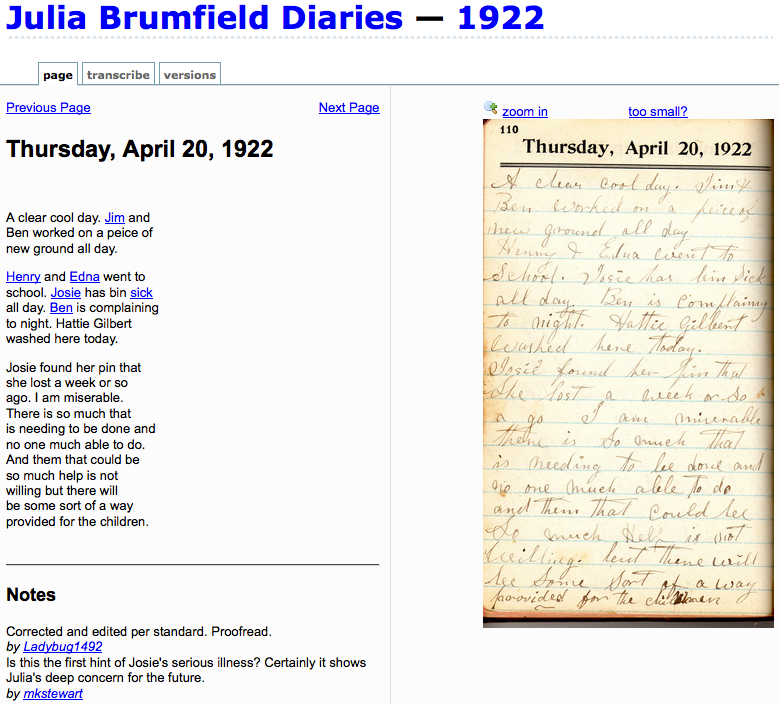 Julia Brumfield Diaries — 1922
page
transcribe
versions
Previous Page
Next Page
Thursday, April 20, 1922
A clear cool day. Jim and
Ben worked on a peice of
new ground all day.
Henry and Edna went to
school. Josie has bin sick
all day. Ben is complaining
to night. Hattie Gilbert
washed here today.
Josie found her pin that
she lost a week or so
ago. I am miserable.
There is so much that
is needing to be done and
no one much able to do.
And them that could be
so much help is not
willing but there will
be some sort of a way
provided for the children.
Notes
Corrected and edited per standard. Proofread.
by Ladybug1492
Is this the first hint of Josie's serious illness? Certainly it shows
Julia's deep concern for the future.
by mkstewart
zoom in
too small?
110
Thursday, April 20, 1922
A clear cool day. Jim &
Ben worked on a peice of
new ground all day
Henry & Edna went to
School. Josie has bin Sick
all day. Ben is Complaining
to night. Hattie Gilbert
washed here today.
Josie found her pin that
She lost a week or So
a go I am miserable
there is So much that
is needing to be done and
no one much able to do
and them that could be
So much Help is not
Willing. but there will
be Some Sort of a way
provided for the children